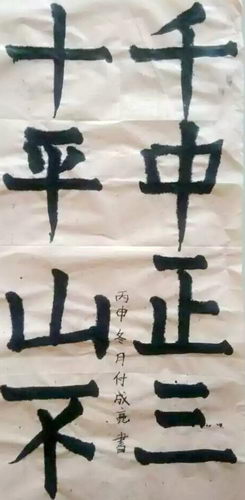 千中正三
十平山不
丙申冬月付成尭書